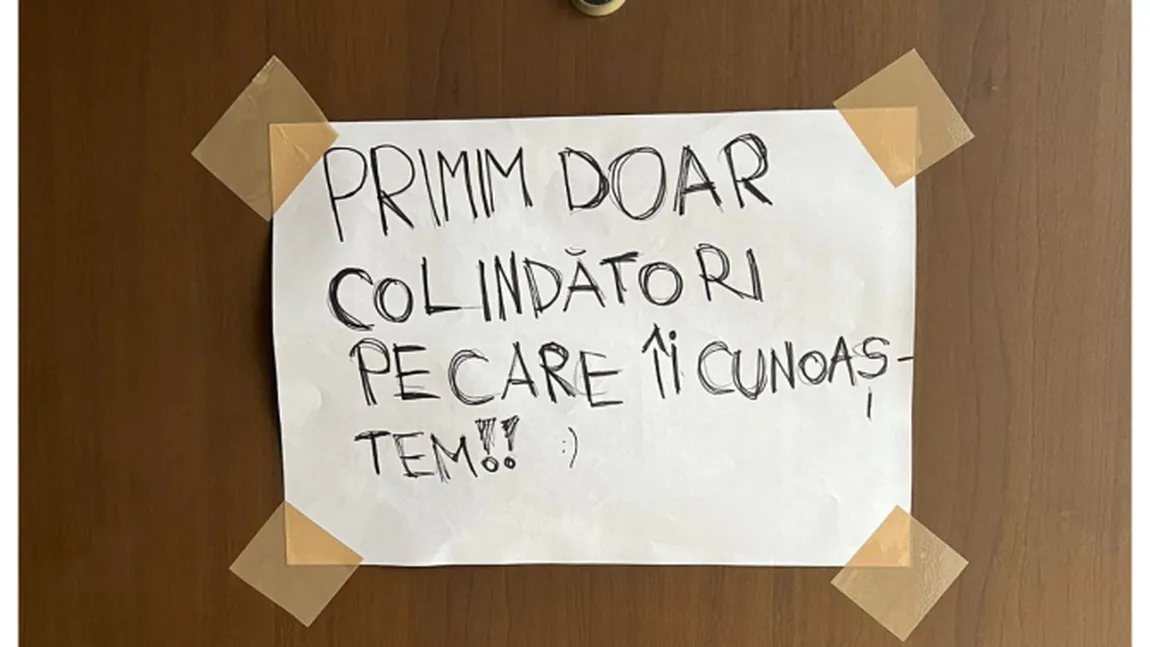 PRIMIM DOAR
COLINDĂTORI
PE CARE ÎI CUNOAȘ-
TEM!! :)